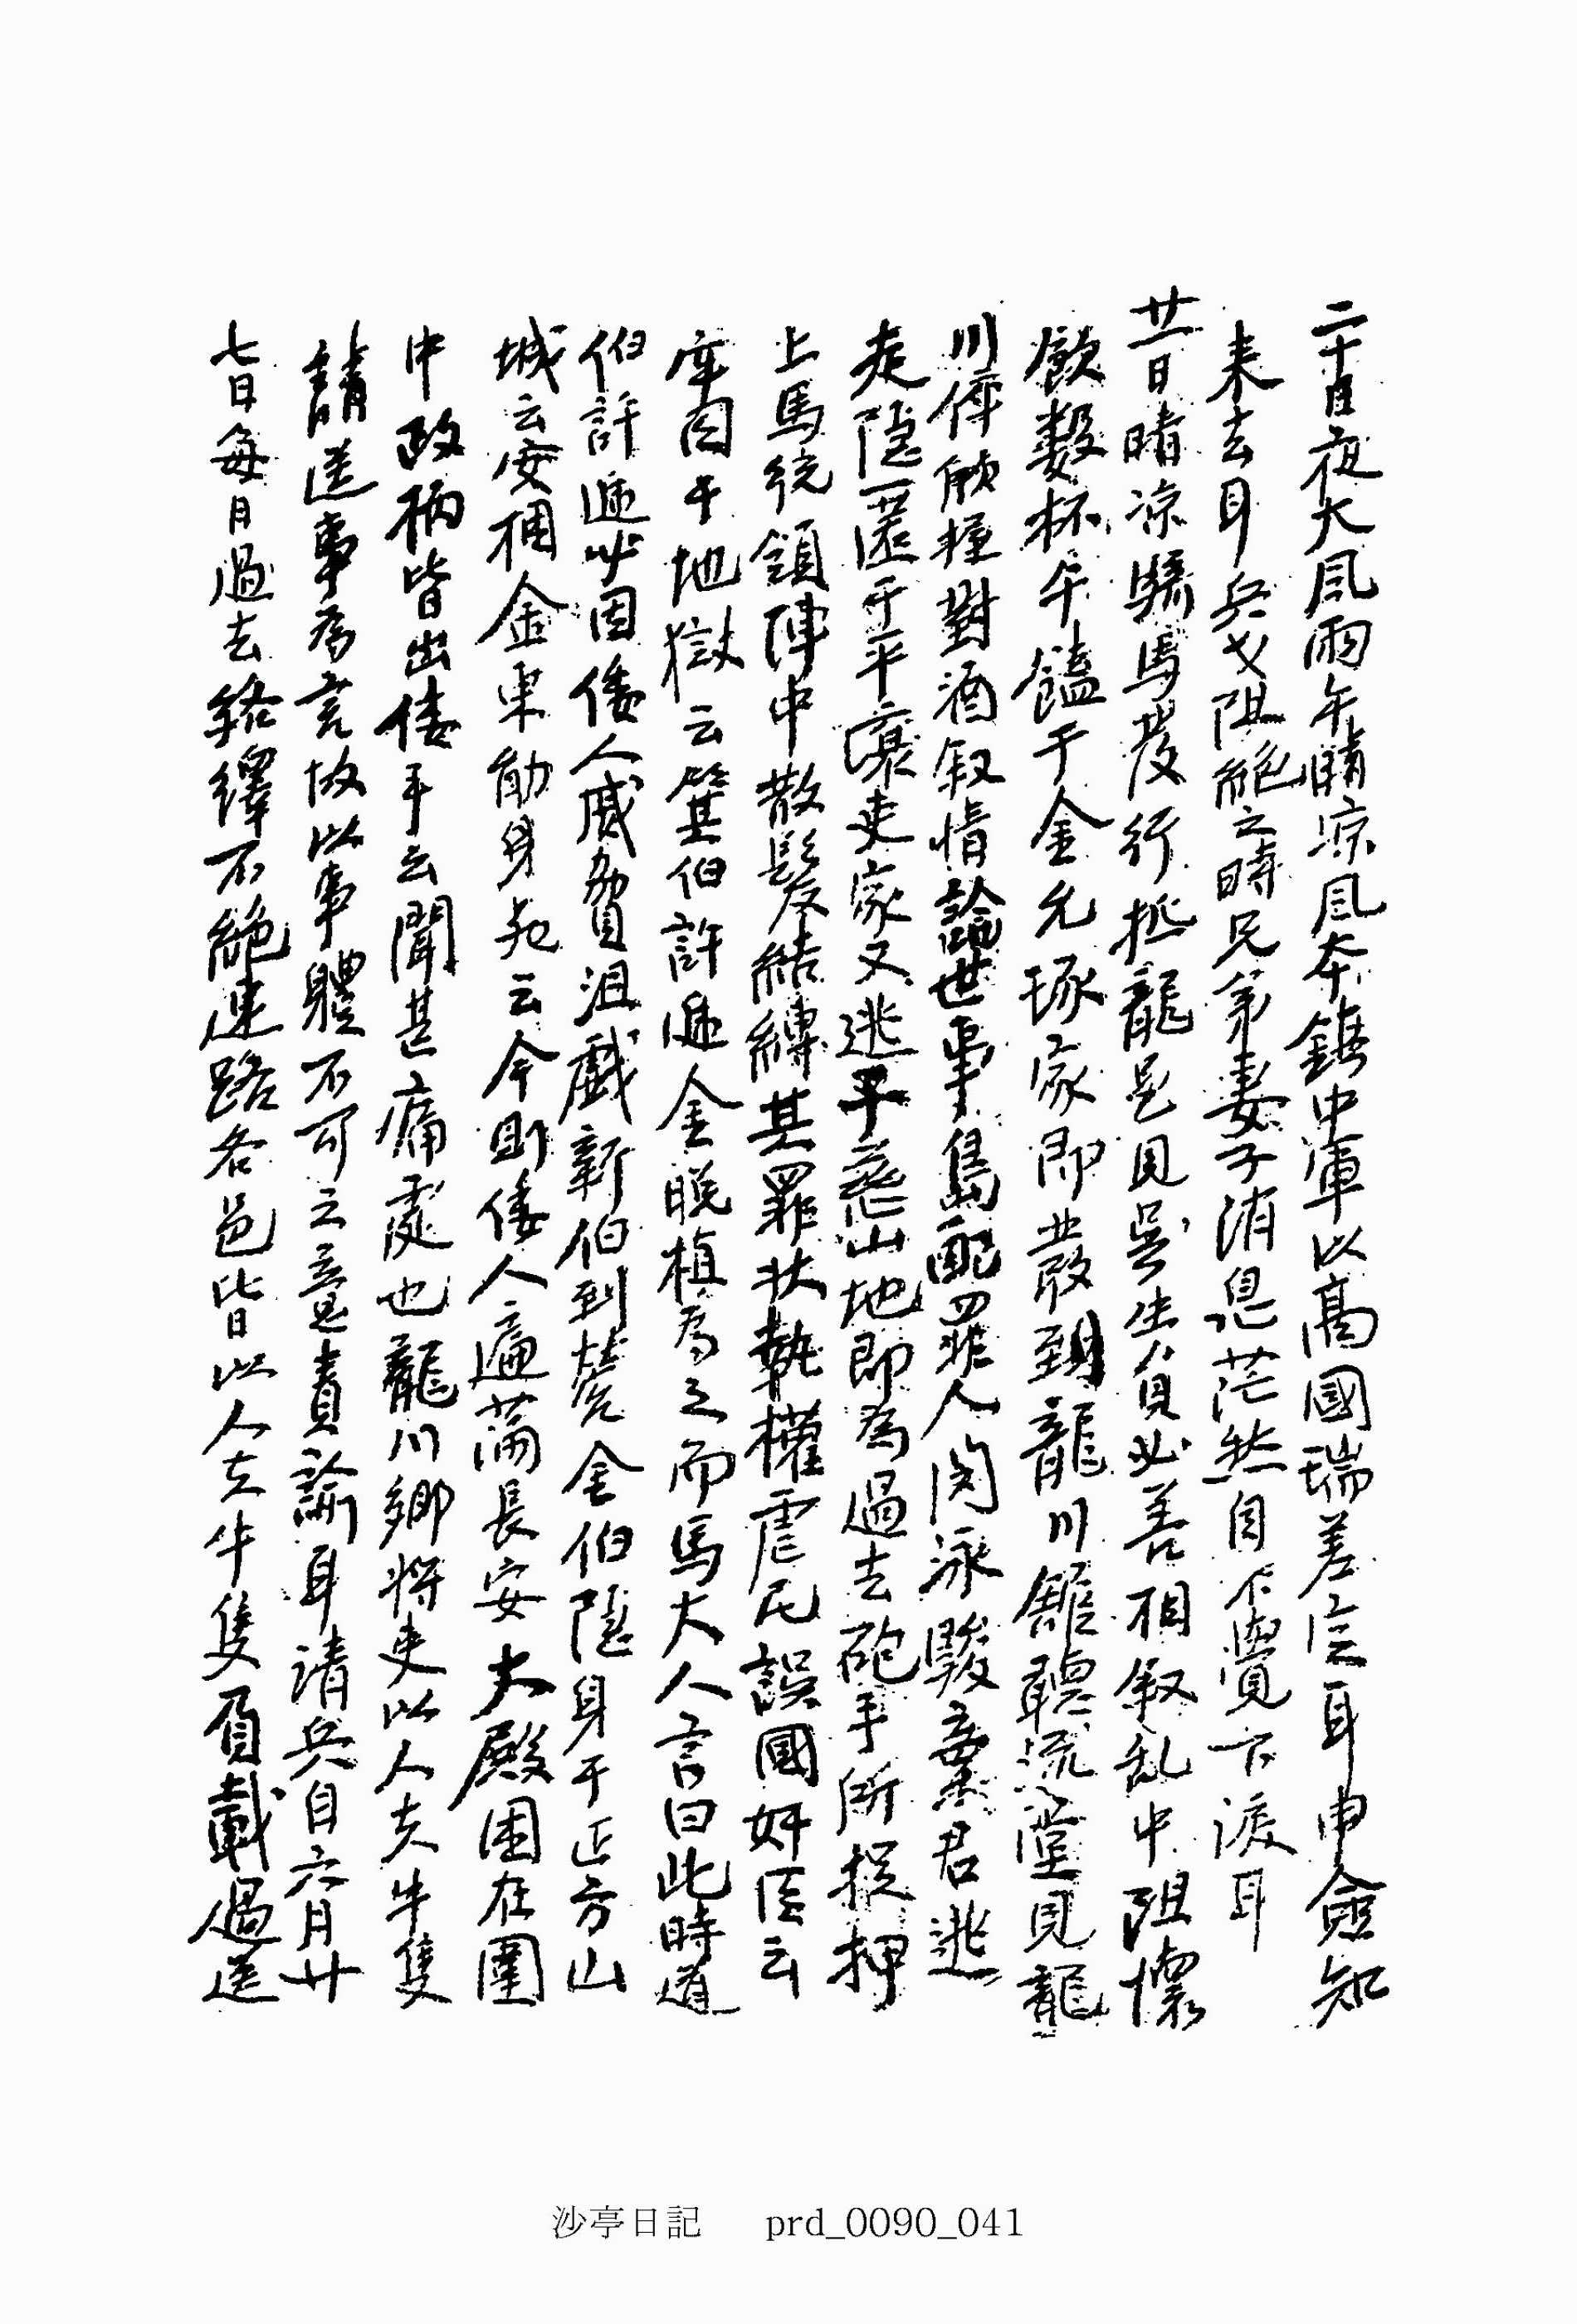 二十日夜大風雨午晴凉風本鎭中軍以高國瑞差定耳申僉知
来去耳兵戈阻絶之時兄弟妻子消息茫然自不覺下淚耳
廿一日晴凉騎馬發行抵龍 見吳生員 善相叙乱中阻懷
飮數杯午饁于金允琢家即發到龍川舘聽流堂見龍
川倅 對酒叙情論世事島配罪人閔泳駿棄君逃
走隱匿于平壤吏家又逃平 山地即爲過去砲手所捉押
上馬統領陣中散髮結縛其罪状執權虐民誤國奸臣云
牢囚于地獄云箕伯許 金晩植爲之而馬大人言曰此時道
伯許遞必因倭人威脅沮戱新伯到 金伯隱身于正方山
城云安 金東 身死云今則倭人遍滿長安大殿困在圍
中政柄皆出倭手云聞甚痛處也龍川鄕將吏以人夫牛隻
請送事爲言故以事體不可之意責諭耳請兵自六月廿
七日每日過去絡繹不絶連路各邑皆以人夫牛隻負載過送
沙亭日記 prd_0090_041